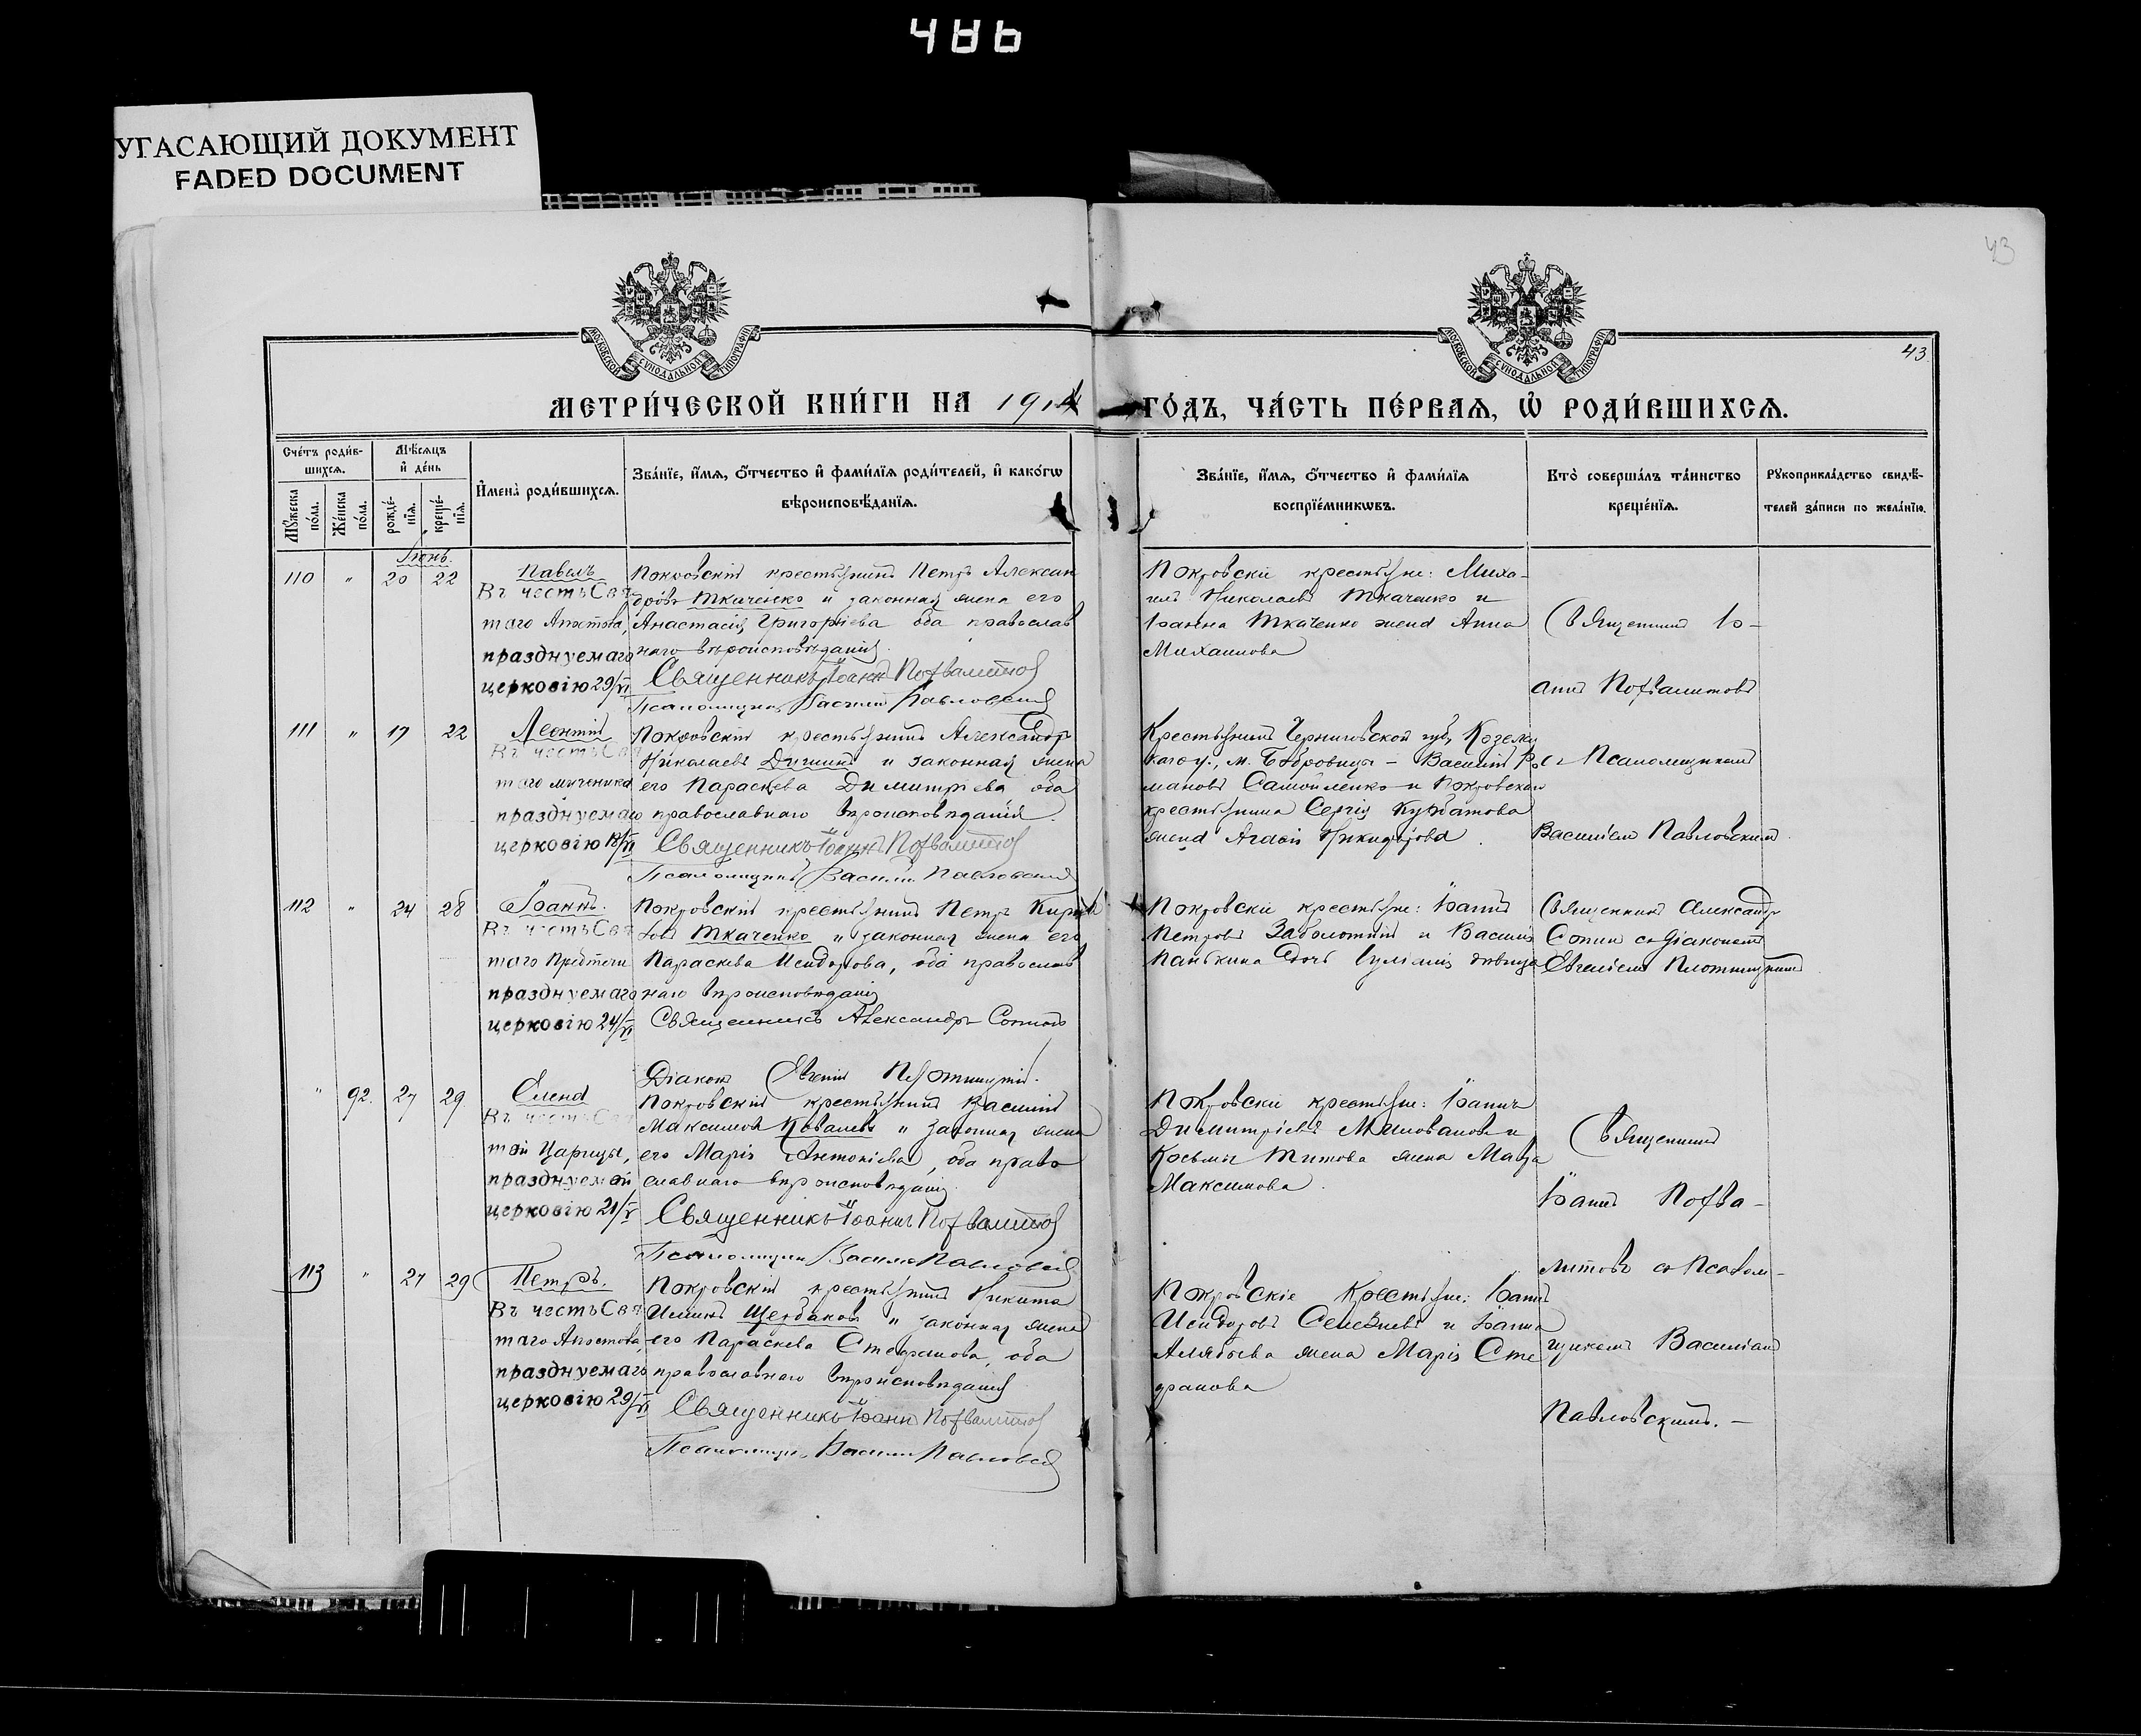 486
УГАСАЮЩИЙ ДОКУМЕНТ
FADED DOCUMENT
43
43
МОСКОВСКОЙ СѴНОДАЛЬНОЙ ТИПОГРАФІИ
МОСКОВСКОЙ СѴНОДАЛЬНОЙ ТИПОГРАФІИ
МЕТРИ́ЧЕСКОЙ КНИ́ГИ НА 1914
ГО́ДЪ, ЧА́СТЬ ПЕ́РВАѦ, Ѡ҆ РОДИ́ВШИХСѦ.
Сче́тъ роди́в-
шихсѧ.
Мꙋ́жеска по́ла.
Же́нска по́ла.
Мѣ́сѧцъ
и҆ де́нь
рожде́-
нїѧ.
креще́-
нїѧ.
И҆мена̀ роди́вшихсѧ.
Зва́нїе, и҆́мѧ, ѻ҆́тчество и҆ фами́лїѧ роди́телей, и҆ како́гѡ
вѣроисповѣ́данїѧ.
Зва́нїе, и҆́мѧ, ѻ҆́тчество и҆ фами́лїѧ
воспрїе́мникѡвъ.
Кто̀ соверша́лъ та́инство
креще́нїѧ.
Рꙋкоприкла́дство свидѣ́-
телей за́писи по жела́нїю.
Іюнь.
110 " 20 22
Павелъ
Въ честь Свя
таго Апостола,
празднуемаго
церковію 29/VI
Покровскій крестьянинъ Петръ Алексан
дровъ Ткаченко и законная жена его
Анастасія Григорьева оба православ
наго вѣроисповѣданія.
Священникъ Іоаннъ
Псаломщикъ Василій Павловскій
Покровскіе крестьяне: Миха-
илъ Николаевъ Ткаченко и
Іоанна Ткаченко жена Анна
Михаилова
Священникъ Іо-
аннъ
111 " 17 22
Леонтій
Въ честь Свя
таго мученика
празднуемаго
церковію 18/VI
Покровскій крестьянинъ Александръ
Николаевъ и законная жена
его Параскева Димитріева оба
православнаго вѣроисповѣданія.
Священникъ Іоаннъ
Псаломщикъ Василій Павловскій
Крестьянинъ Черниговской губ, Козелец
каго у., м. Бобровицы - Василій Ро
мановъ Самойленко и Покровскаго
крестьянина Сергія Курбатова
жена Агафія Никифорова.
съ Псаломщикомъ
Василіемъ Павловскимъ.
112 " 24 28
Іоаннъ.
Въ честь Свя
таго Предтечи
празднуемаго
церковію 24/VI
Покровскій крестьянинъ Петръ
Ткаченко и законная жена его
Параскева Исидорова, оба православ
наго вѣроисповѣданія
Священникъ Александръ
Діаконъ Евгеній Плотницкій.
Покровскіе крестьяне: Іоаннъ
Петровъ Заболотній и Василія
Панькина дочь Іуліанія дѣвица
Священникъ Александръ
съ діакономъ
Евгеніемъ Плотницкимъ
" 92. 27 29.
Елена
Въ честь Свя
той Царицы,
празднуемой
церковію 21/V
Покровскій крестьянинъ Василій
Максимовъ Ковалевъ и законная жена
его Марія Антоніева, оба право
славнаго вѣроисповѣданія.
Священникъ Іоаннъ
Псаломщикъ Василій Павловскій
Покровскіе крестьяне: Іоаннъ
Димитріевъ Миловановъ и
Космы Титова жена
Максимова.
Священникъ
Іоаннъ
съ Псалом-
113 " 27 29
Петръ.
Въ честь Свя
таго Апостола,
празднуемаго
церковію 29/VI
Покровскій крестьянинъ Никита
Щербаковъ и законная жена
его Параскева Стефанова, оба
православнаго вѣроисповѣданія
Священникъ Іоаннъ
Псаломщикъ Василій Павловскій
Покровскіе крестьяне: Іоаннъ
Исидоровъ и Іоанна
Алябьева жена Марія Сте
фанова
щикомъ Василіемъ
Павловскимъ. -